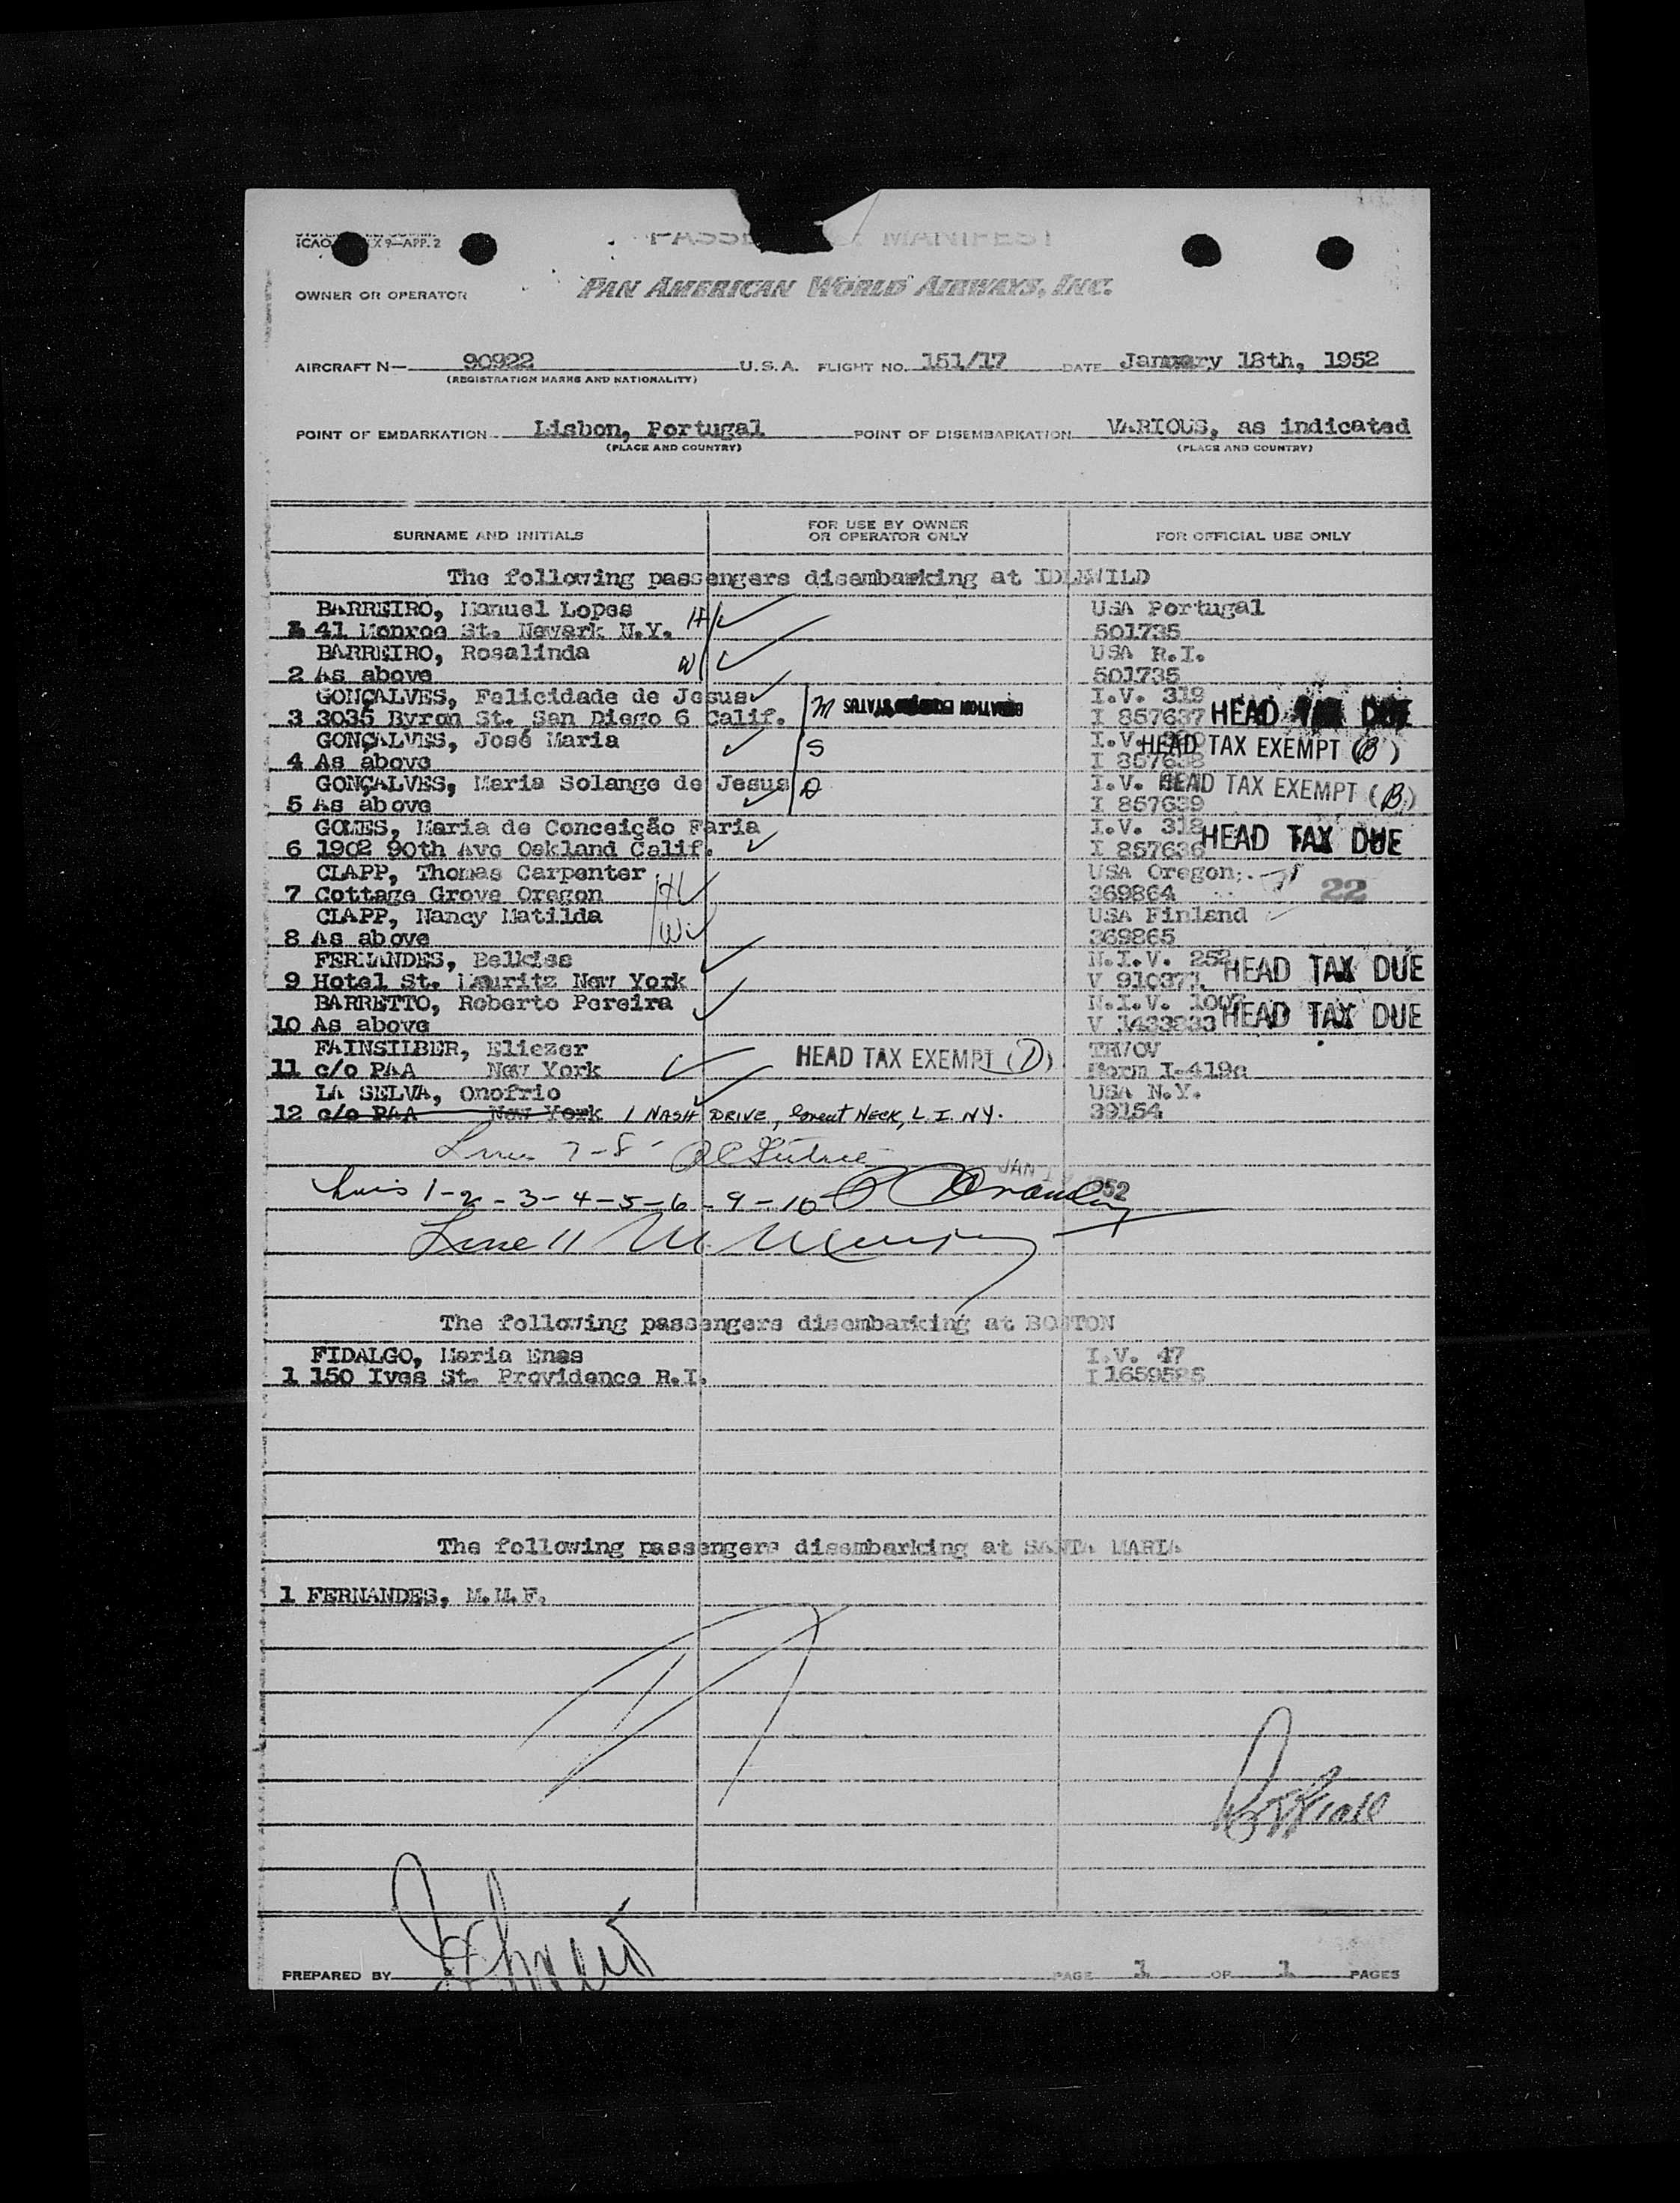 ICAO X 9—APP. 2
PASSE MANIFEST
OWNER OR OPERATOR PAN AMERICAN WORLD AIRWAYS, INC.
AIRCRAFT N— 90922 U.S.A. FLIGHT NO. 151/17 DATE January 18th, 1952
(REGISTRATION MARKS AND NATIONALITY)
POINT OF EMBARKATION Lisbon, Portugal POINT OF DISEMBARKATION VARIOUS, as indicated
(PLACE AND COUNTRY) (PLACE AND COUNTRY)
SURNAME AND INITIALS FOR USE BY OWNER OR OPERATOR ONLY FOR OFFICIAL USE ONLY
The following passengers disembarking at IDLEWILD
BARREIRO, Manuel Lopes H USA Portugal
1 41 Monroe St. Newark N.Y. 501735
BARREIRO, Rosalinda W USA R.I.
2 As above 501735
GONÇALVES, Felicidade de Jesus M I.V. 319
3 3035 Byron St. San Diego 6 Calif. I 857637 HEAD TAX DUE
GONÇALVES, José Maria S I.V. HEAD TAX EXEMPT (B)
4 As above I 857638
GONÇALVES, Maria Solange de Jesus D I.V. HEAD TAX EXEMPT (B)
5 As above I 857639
GOMES, Maria de Conceição Faria I.V. 318
6 1902 90th Ave Oakland Calif. I 857636 HEAD TAX DUE
CLAPP, Thomas Carpenter H USA Oregon
7 Cottage Grove Oregon 369864 22
CLAPP, Nancy Matilda Wi USA Finland
8 As above 369865
FERNANDES, Belkiss N.I.V. 252 HEAD TAX DUE
9 Hotel St. Mauritz New York V 910371
BARRETTO, Roberto Pereira N.I.V. 1007 HEAD TAX DUE
10 As above V 1433833
FAINSILBER, Eliezer HEAD TAX EXEMPT (D) TRWOV
11 c/o PAA New York Form I-419a
LA SELVA, Onofrio USA N.Y.
12 c/o PAA New York 1 NASH DRIVE, Great NECK, L.I. N.Y. 39154
Lines 7-8
JAN 1952
Lines 1-2-3-4-5-6-9-10
Line 11
The following passengers disembarking at BOSTON
FIDALGO, Maria Enes I.V. 47
1 150 Ives St. Providence R.I. I 1659585
The following passengers disembarking at SANTA MARIA
1 FERNANDES, M.M.F.
PREPARED BY PAGE 1 OF 1 PAGES